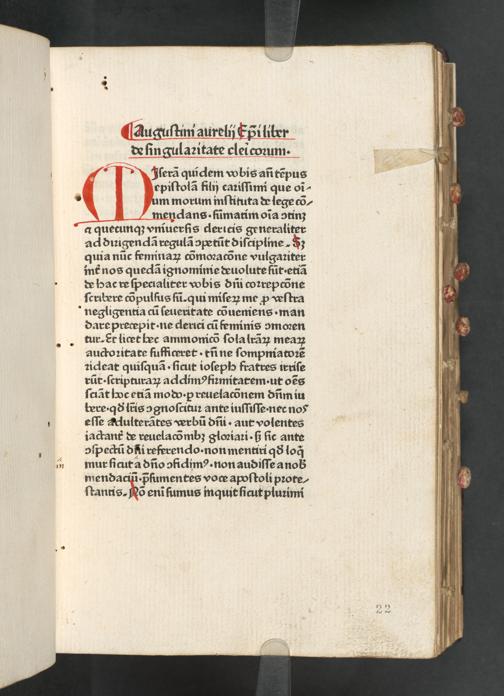 Augustini aurelij Ep̄i liber
de singularitate clericorum.
MIserā quidem vobis an̄ tēpus
epistolā filij carissimi que oī⸗
um morum instituta de lege cō⸗
mendans. summatim oīa ↄtinꝫ
⁊ quecunqꝫ vniuersis clericis generaliter
ad dirigendā regulā ↄpetūt discipline. Sꝫ
quia nūc feminaꝝ cōmoracōne vulgariter
int̄ nos quedā ignominie deuolute sūt. etiā
de hac re specialiter vobis dn̄i correpcōne
scribere cōpulsus sū. qui miseꝝ me ꝓ vestra
negligentia cū seueritate cōueniens. man
dare precepit. ne clerici cū feminis ↄmoren
tur. Et licet hec ammonicō sola lr̄aꝝ meaꝝ
auctoritate sufficeret. tn̄ ne sompniatorē
rideat quisquā. sicut ioseph fratres irrise
rūt. scripturaꝝ addimꝰ firmitatem. ut om̄s
sciāt hoc etiā modo. ꝑ reuelacōnem dn̄m iu
bere. qd̓ lr̄is ↄgnoscitur ante iussisse. nec nos
esse adulterātes verbū dn̄i. aut volentes
iactant̓ de reuelacōnibꝫ gloriari. sꝫ sic ante
ↄspectū dn̄i referendo. non mentiri qd̓ loq̄
mur sicut a dn̄o ↄfidimꝰ. non audisse a nob̄
mendaciū. p̄sumentes voce apostoli prote⸗
stantis. Nō enī sumus inquit sicut plurimi
22